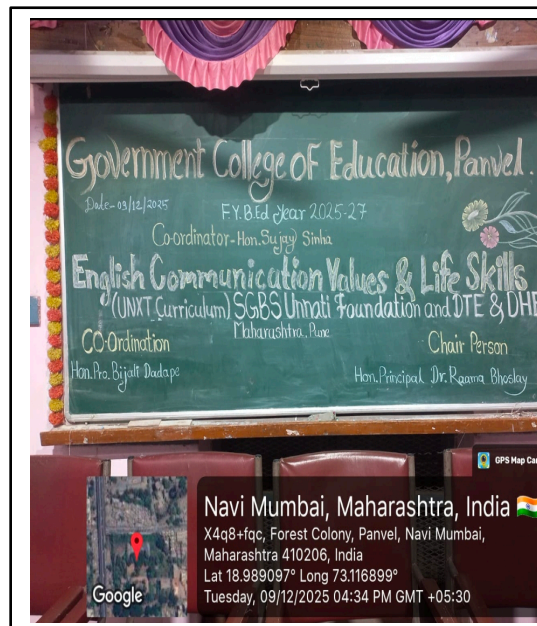 Government College of Education, Panvel.
Date- 09/12/2025
F.Y.B.Ed Year 2025-27
Co-ordinator-Hon. Sujay Sinha
English Communication Values & Life Skills
(UNXT Curriculum) SGBS Unnati Foundation and DTE & DHE
Maharushtra, Pune
CO-Ordination
Chair Person
Hon. Pro. Bijali Dadape
Hon. Principal Dr. Raama Bhoslay
GPS Map Car
Navi Mumbai, Maharashtra, India
X4q8+fqc, Forest Colony, Panvel, Navi Mumbai,
Maharashtra 410206, India
Lat 18.989097° Long 73.116899°
Tuesday, 09/12/2025 04:34 PM GMT +05:30
Google